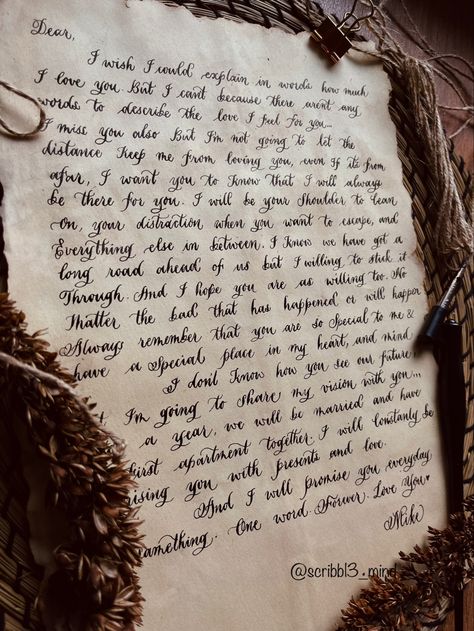 Dear,
I wish I could explain in words how much
I love you. But I can't because there aren't any
words to describe the love I feel for you...
I miss you also But I'm not going to let the
distance Keep me from loving you, even If its from
afar, I want you to Know that I will always
be there for you. I will be your Shoulder to lean
On, your distraction when you want to escape, and
Everything else in between. I Know we have got a
long road ahead of us but I willing to stick it
Through. And I hope you are as willing too. No
Matter the bad that has happened or will happen
Always remember that you are so Special to me &
have a Special place in my heart, and mind
I don't Know how you see our future,
I'm going to share my vision with you...
a year, we will be married and have
first apartment together. I will constantly be
rising you with presents and love.
And I will promise you everyday
Something. One word. Forever. Love You♥
Mike
@scribbl3_mind